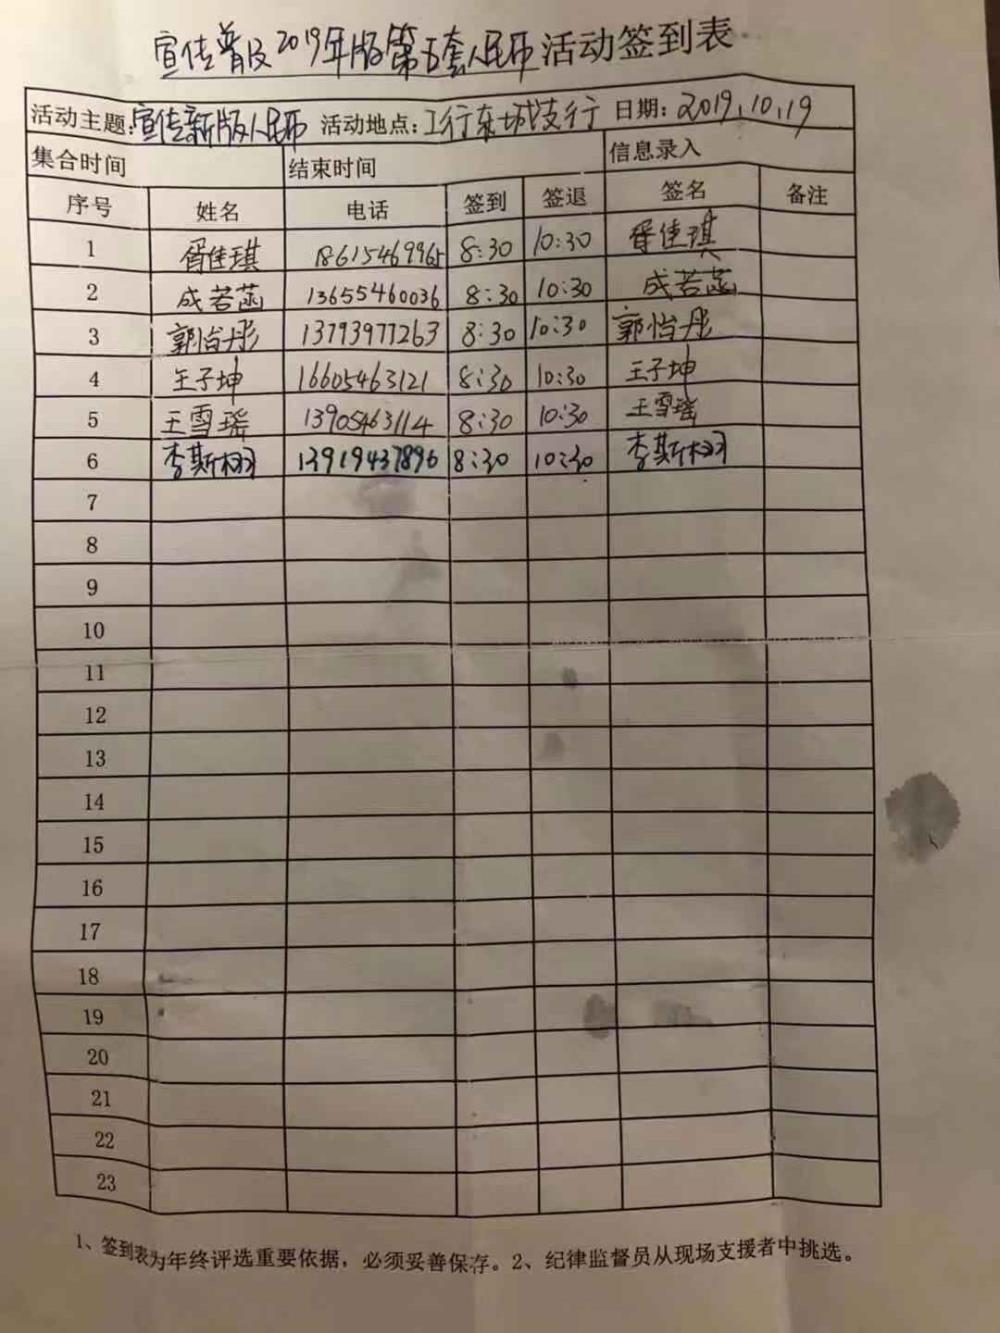 宣传普及2019年版第五套人民币活动签到表
活动主题:宣传新版人民币 活动地点:工行东城支行 日期:2019.10.19
集合时间 结束时间 信息录入
序号 姓名 电话 签到 签退 签名 备注
1 胥佳琪 18615469965 8:30 10:30 胥佳琪
2 成若菡 13655460036 8:30 10:30 成若菡
3 郭怡彤 13793977263 8:30 10:30 郭怡彤
4 王子坤 16605463121 8:30 10:30 王子坤
5 王雪瑶 13905463114 8:30 10:30 王雪瑶
6 李斯栩 13919437896 8:30 10:30 李斯栩
7
8
9
10
11
12
13
14
15
16
17
18
19
20
21
22
23
1、签到表为年终评选重要依据，必须妥善保存。2、纪律监督员从现场支援者中挑选。